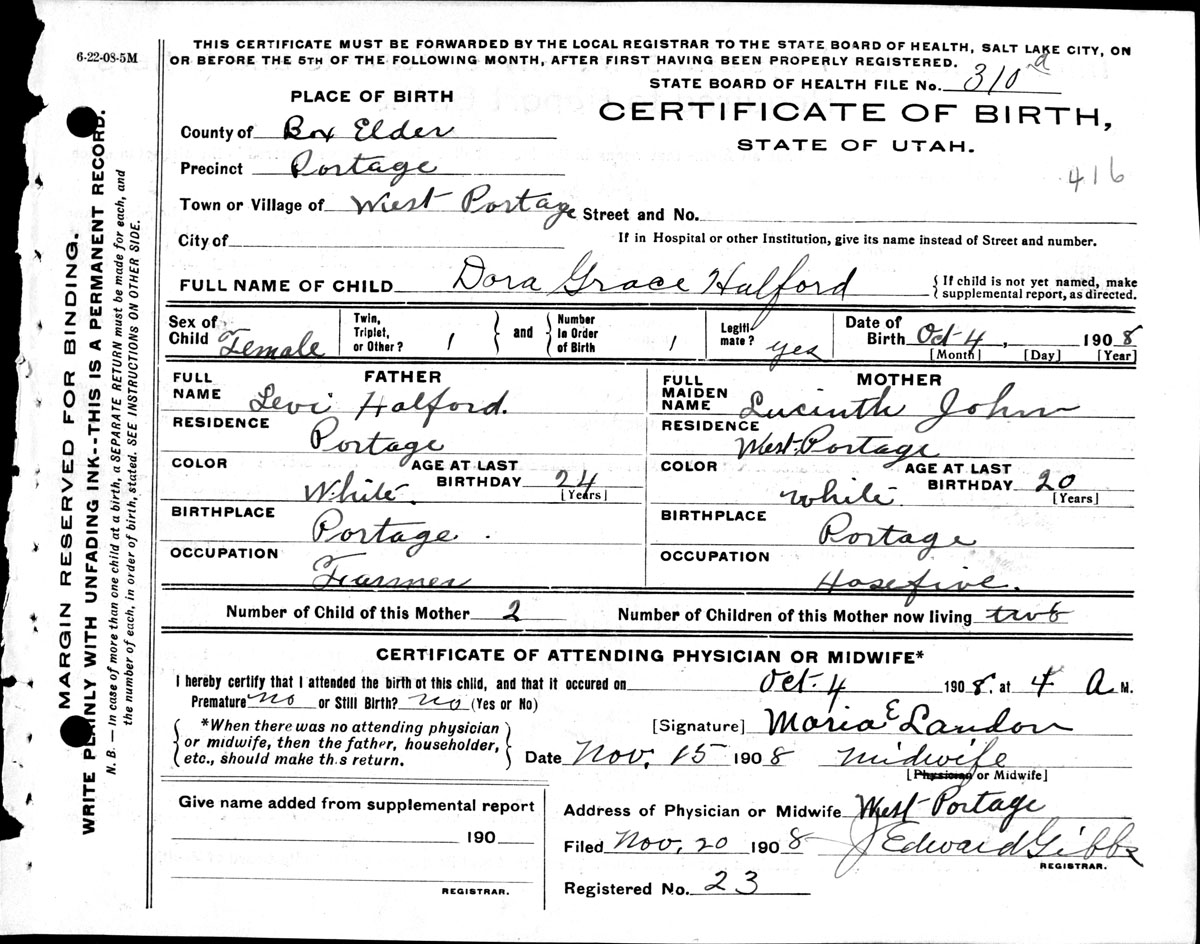 6-22-08-5M
THIS CERTIFICATE MUST BE FORWARDED BY THE LOCAL REGISTRAR TO THE STATE BOARD OF HEALTH, SALT LAKE CITY, ON
OR BEFORE THE 5TH OF THE FOLLOWING MONTH, AFTER FIRST HAVING BEEN PROPERLY REGISTERED.
STATE BOARD OF HEALTH FILE No. 310 d
PLACE OF BIRTH
CERTIFICATE OF BIRTH,
STATE OF UTAH.
416
County of Box Elder
Precinct Portage
Town or Village of West Portage Street and No.
City of If in Hospital or other Institution, give its name instead of Street and number.
FULL NAME OF CHILD Dora Grace Halford { If child is not yet named, make
supplemental report, as directed.
Sex of Child Female Twin, Triplet, or Other? 1 and Number In Order of Birth 1 Legiti- mate? yes Date of Birth Oct 4, 1908
[Month] [Day] [Year]
FATHER
FULL NAME Levi Halford.
RESIDENCE Portage
COLOR White. AGE AT LAST BIRTHDAY 24
[Years]
BIRTHPLACE Portage.
OCCUPATION Farmer
MOTHER
FULL MAIDEN NAME Lucinth John
RESIDENCE West-Portage
COLOR White. AGE AT LAST BIRTHDAY 20
[Years]
BIRTHPLACE Portage
OCCUPATION Hosefive.
Number of Child of this Mother 2 Number of Children of this Mother now living two
CERTIFICATE OF ATTENDING PHYSICIAN OR MIDWIFE*
I hereby certify that I attended the birth of this child, and that it occured on Oct. 4 1908. at 4 A M.
Premature? No or Still Birth? No (Yes or No)
*When there was no attending physician
or midwife, then the father, householder,
etc., should make th.s return.
[Signature] Maria E Landon
Date Nov. 15 1908 Midwife
[Physician or Midwife]
Give name added from supplemental report
190
REGISTRAR.
Address of Physician or Midwife West-Portage
Filed Nov. 20 1908 J Edward Gibbs
REGISTRAR.
Registered No. 23
MARGIN RESERVED FOR BINDING.
WRITE PLAINLY WITH UNFADING INK--THIS IS A PERMANENT RECORD.
N. B. — In case of more than one child at a birth, a SEPARATE RETURN must be made for each, and
the number of each, in order of birth, stated. SEE INSTRUCTIONS ON OTHER SIDE.